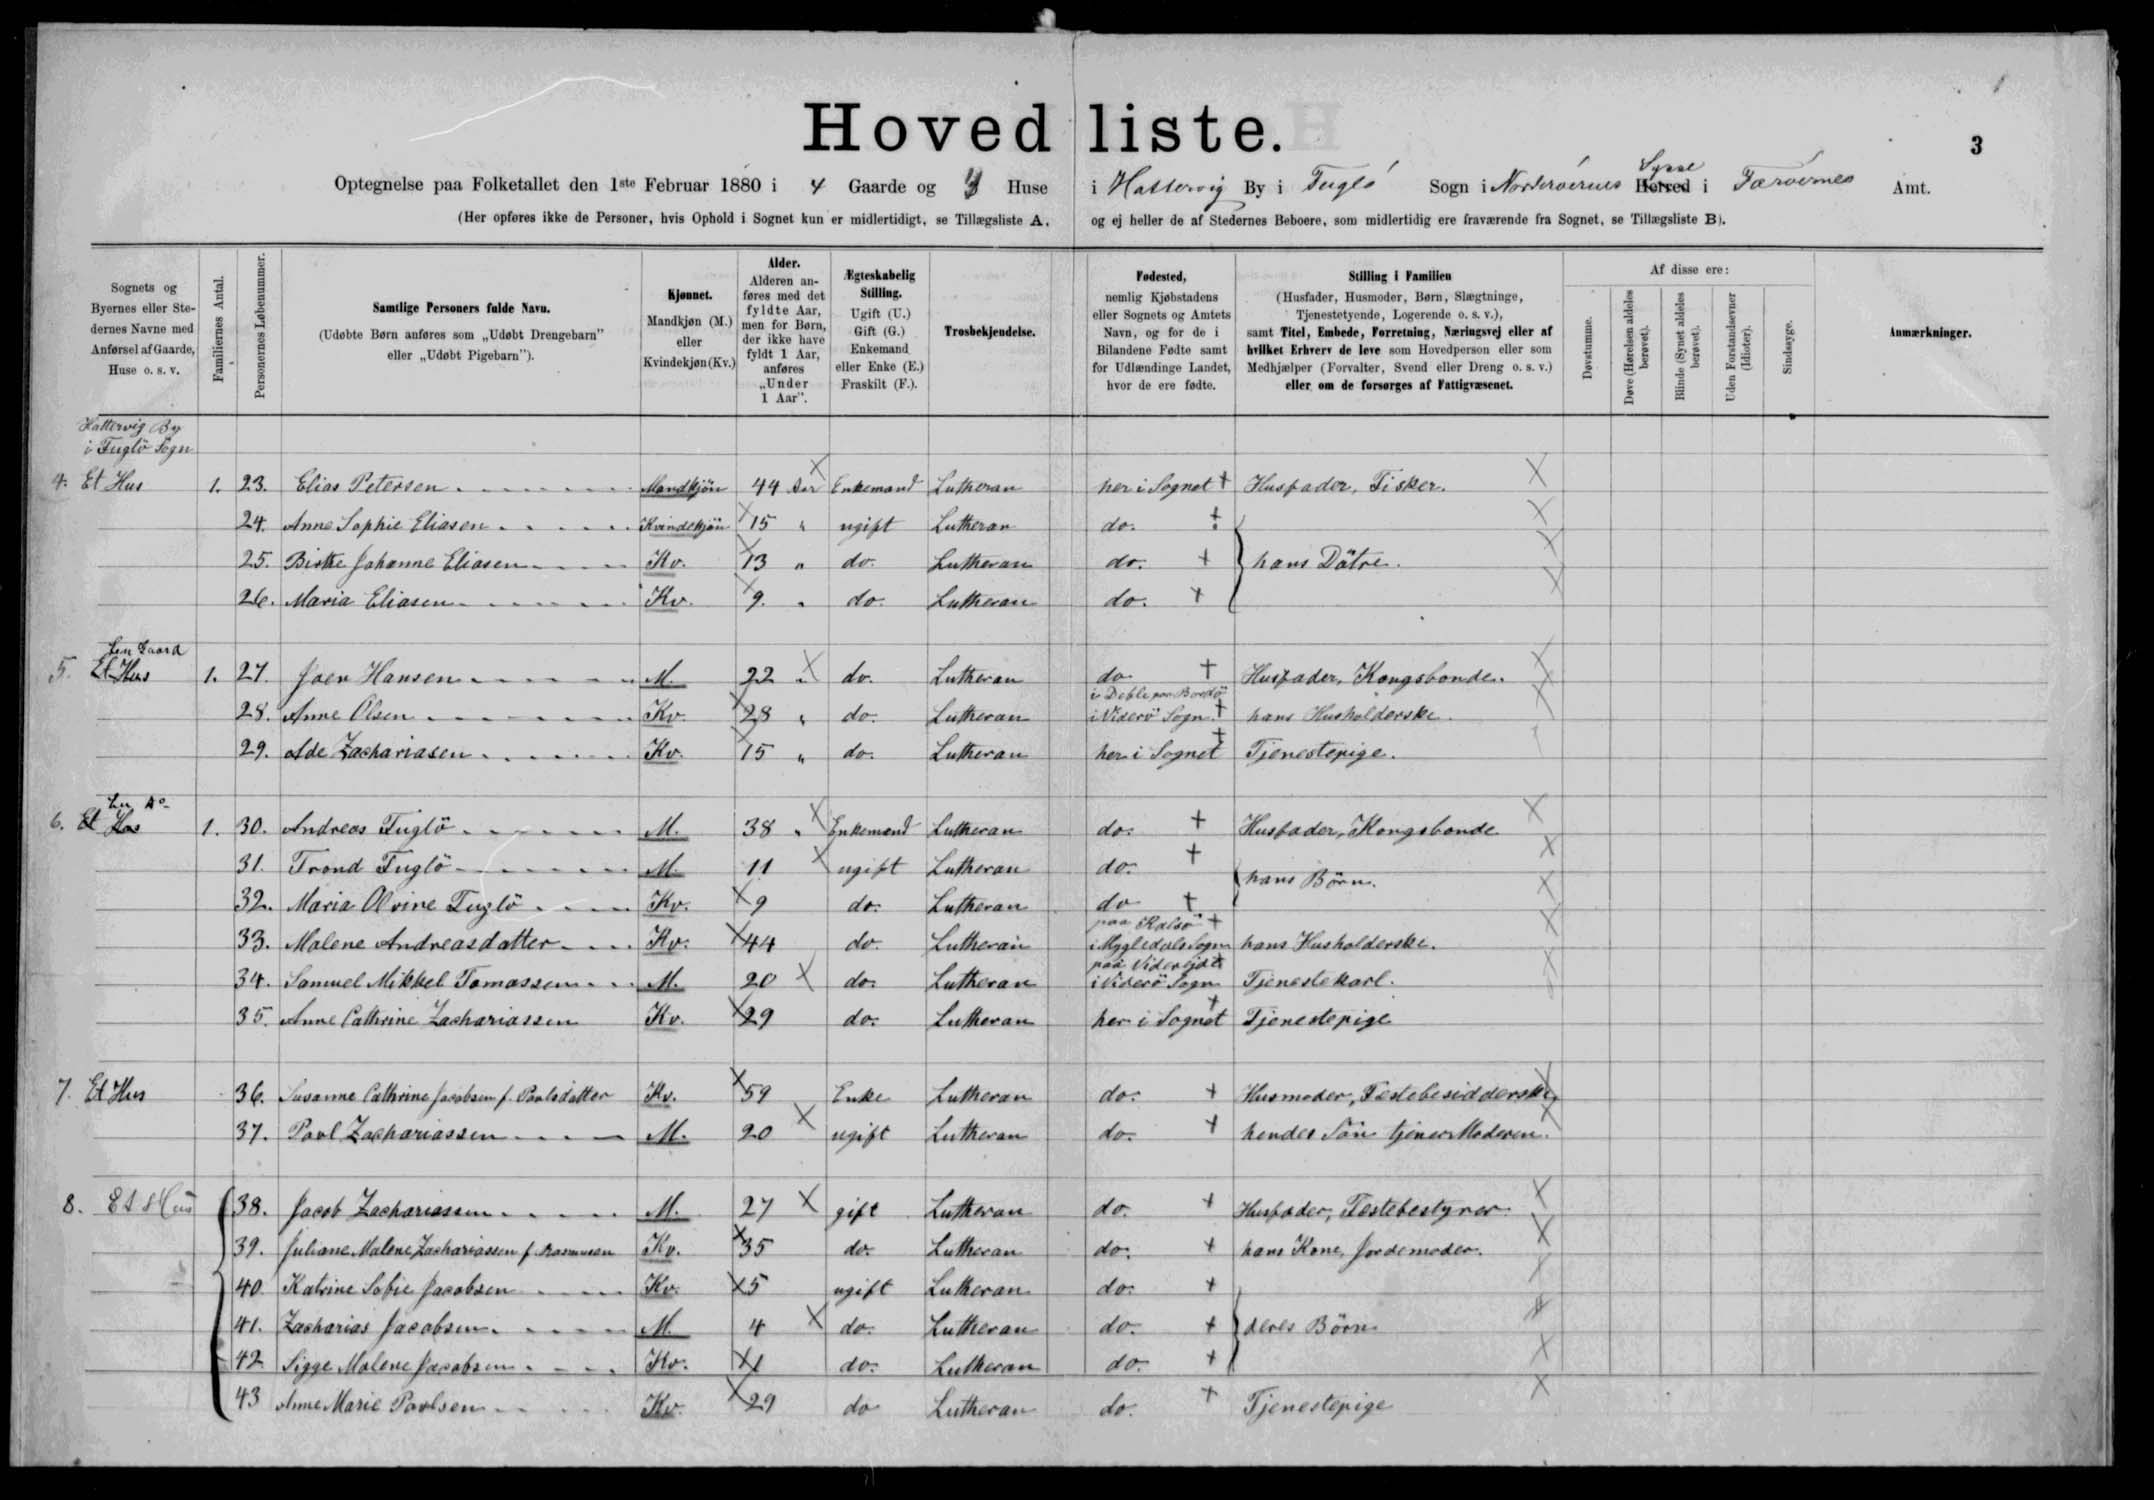 Hovedliste.
3
Optegnelse paa Folketallet den 1ste Februar 1880 i 4 Gaarde og Huse i Hattervig By i Fuglö Sogn i Norderöernes Sysse Herred i Færöernes Amt.
(Her opføres ikke de Personer, hvis Ophold i Sognet kun er midlertidigt, se Tillægsliste A. og ej heller de af Stedernes Beboere, som midlertidig ere fraværende fra Sognet, se Tillægsliste B).
Sognets og Byernes eller Stedernes Navne med Anførsel af Gaarde, Huse o. s. v.
Familiernes Antal.
Personernes Løbenummer.
Samtlige Personers fulde Navn.
(Udøbte Børn anføres som „Udøbt Drengebarn" eller „Udøbt Pigebarn").
Kjønnet.
Mandkjøn (M.) eller Kvindekjøn (Kv.)
Alder.
Alderen anføres med det fyldte Aar, men for Børn, der ikke have fyldt 1 Aar, anføres „Under 1 Aar".
Ægteskabelig Stilling.
Ugift (U.) Gift (G.) Enkemand eller Enke (E.) Fraskilt (F.).
Trosbekjendelse.
Fødested,
nemlig Kjøbstadens eller Sognets og Amtets Navn, og for de i Bilandene Fødte samt for Udlændinge Landet, hvor de ere fødte.
Stilling i Familien
(Husfader, Husmoder, Børn, Slægtninge, Tjenestetyende, Logerende o. s. v.), samt Titel, Embede, Forretning, Næringsvej eller af hvilket Erhverv de leve som Hovedperson eller som Medhjælper (Forvalter, Svend eller Dreng o. s. v.) eller om de forsørges af Fattigvæsenet.
Af disse ere:
Døvstumme.
Døve (Hørelsen aldeles berøvet).
Blinde (Synet aldeles berøvet).
Uden Forstandsevner (Idioter).
Sindssyge.
Anmærkninger.
Hattervig By
i Fuglö Sogn
4. Et Hus 1. 23. Elias Petersen Mandkjön 44 Aar Enkemand Lutheran her i Sognet Husfader, Fisker.
24. Anne Sophie Eliasen Kvindekjön 15 " ugift Lutheran do.
25. Birthe Johanne Eliasen Kv. 13 " do. Lutheran do. hans Dötre.
26. Maria Eliasen Kv. 9. " do. Lutheran do.
Een Gaard
5. Et Hus 1. 27. Joen Hansen M. 22 " do. Lutheran do Husfader, Kongsbonde.
i Deble paa Bordö
28. Anne Olsen Kv. 28 " do. Lutheran i Viderö Sogn. hans Husholderske.
29. Ade Zachariasen Kv. 15 " do. Lutheran her i Sognet Tjenestepige.
Een Do
6. Et Hus 1. 30. Andreas Fuglö M. 38 " Enkemand Lutheran do. Husfader, Kongsbonde
31. Trond Fuglö M. 11 ugift Lutheran do. hans Börn.
32. Maria Olvine Fuglö Kv. 9 do. Lutheran do
paa Kalsö
33. Malene Andreasdatter Kv. 44 do. Lutheran i Mygledals Sogn hans Husholderske.
paa Viderejde
34. Samuel Mikkel Tomassen M. 20 do. Lutheran i Viderö Sogn Tjenestekarl.
35. Anne Cathrine Zachariassen Kv. 29 do. Lutheran her i Sognet Tjenestepige
7. Et Hus 36. Susanne Cathrine Jacobsen f. Povlsdatter Kv. 59 Enke Lutheran do. Husmoder, Festebesidderske,
37. Povl Zachariassen M. 20 ugift Lutheran do. hendes Sön tjener Moderen.
8. Et Hus 38. Jacob Zachariassen M. 27 gift Lutheran do. Husfader, Festebestyrer.
39. Juliane Malene Zachariassen f. Rasmussen Kv. 35 do. Lutheran do. hans Kone, Jordemoder.
40. Katrine Sofie Jacobsen Kv. 5 ugift Lutheran do.
41. Zacharias Jacobsen M. 4 do. Lutheran do. deres Börn
42 Sigge Malene Jacobsen Kv. 1 do. Lutheran do.
43 Anne Marie Povlsen Kv. 29 do Lutheran do. Tjenestepige